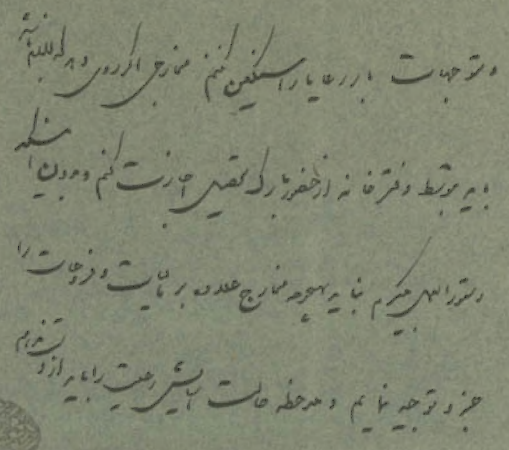 و توجیهات بار رعایا را سنگین کنم مخارجی اگر روی دهد که لابد باشم
باید بتوسط دفترخانه از حضور مبارک تحصیل اجازت کنم و بدون اینکه
دستورالعمل بگیرم نباید بهیچوجه مخارج علاوه بر مالیات و فروعات را
جزو توجیه نمایم و ملاحظه حالت آسایش رعیت را باید از